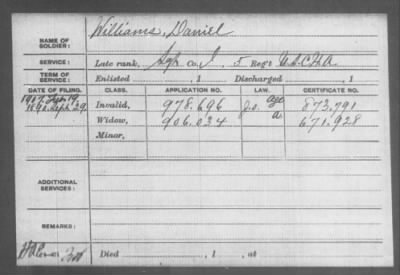 NAME OF SOLDIER: Williams, Daniel
SERVICE: Late rank, Sgt Co. I, 5 Reg't U.S.C.H.A.
TERM OF SERVICE: Enlisted , 1 Discharged , 1
DATE OF FILING. CLASS. APPLICATION NO. LAW. CERTIFICATE NO.
1907. 19 Invalid, 978.696 age 873.791
1890. Sept. 29 Widow, 906.034 a. 671.928
Minor,
ADDITIONAL SERVICES:
REMARKS:
Died , 1 , at